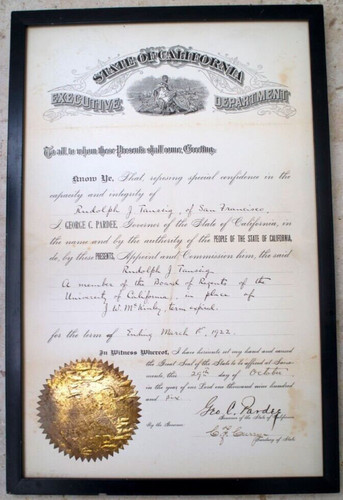 STATE OF CALIFORNIA
EXECUTIVE DEPARTMENT
To all to whom these Presents shall come, Greeting:
Know Ye, That, reposing special confidence in the
capacity and integrity of
Rudolph J. Taussig, of San Francisco
I, GEORGE C. PARDEE, Governor of the State of California, in
the name and by the authority of the PEOPLE OF THE STATE OF CALIFORNIA,
do, by these PRESENTS, Appoint and Commission him, the said
Rudolph J. Taussig
A member of the Board of Regents of the
University of California in place of
J. W. McKinley, term expired,
for the term of Ending March 1, 1922.
In Witness Whereof, I have hereunto set my hand and caused
the Great Seal of the State to be affixed at Sacra-
mento this 29th day of October
in the year of our Lord one thousand nine hundred
and Six.
Geo. C. Pardee
Governor of the State of California
By the Governor:
C. F. Curry
Secretary of State